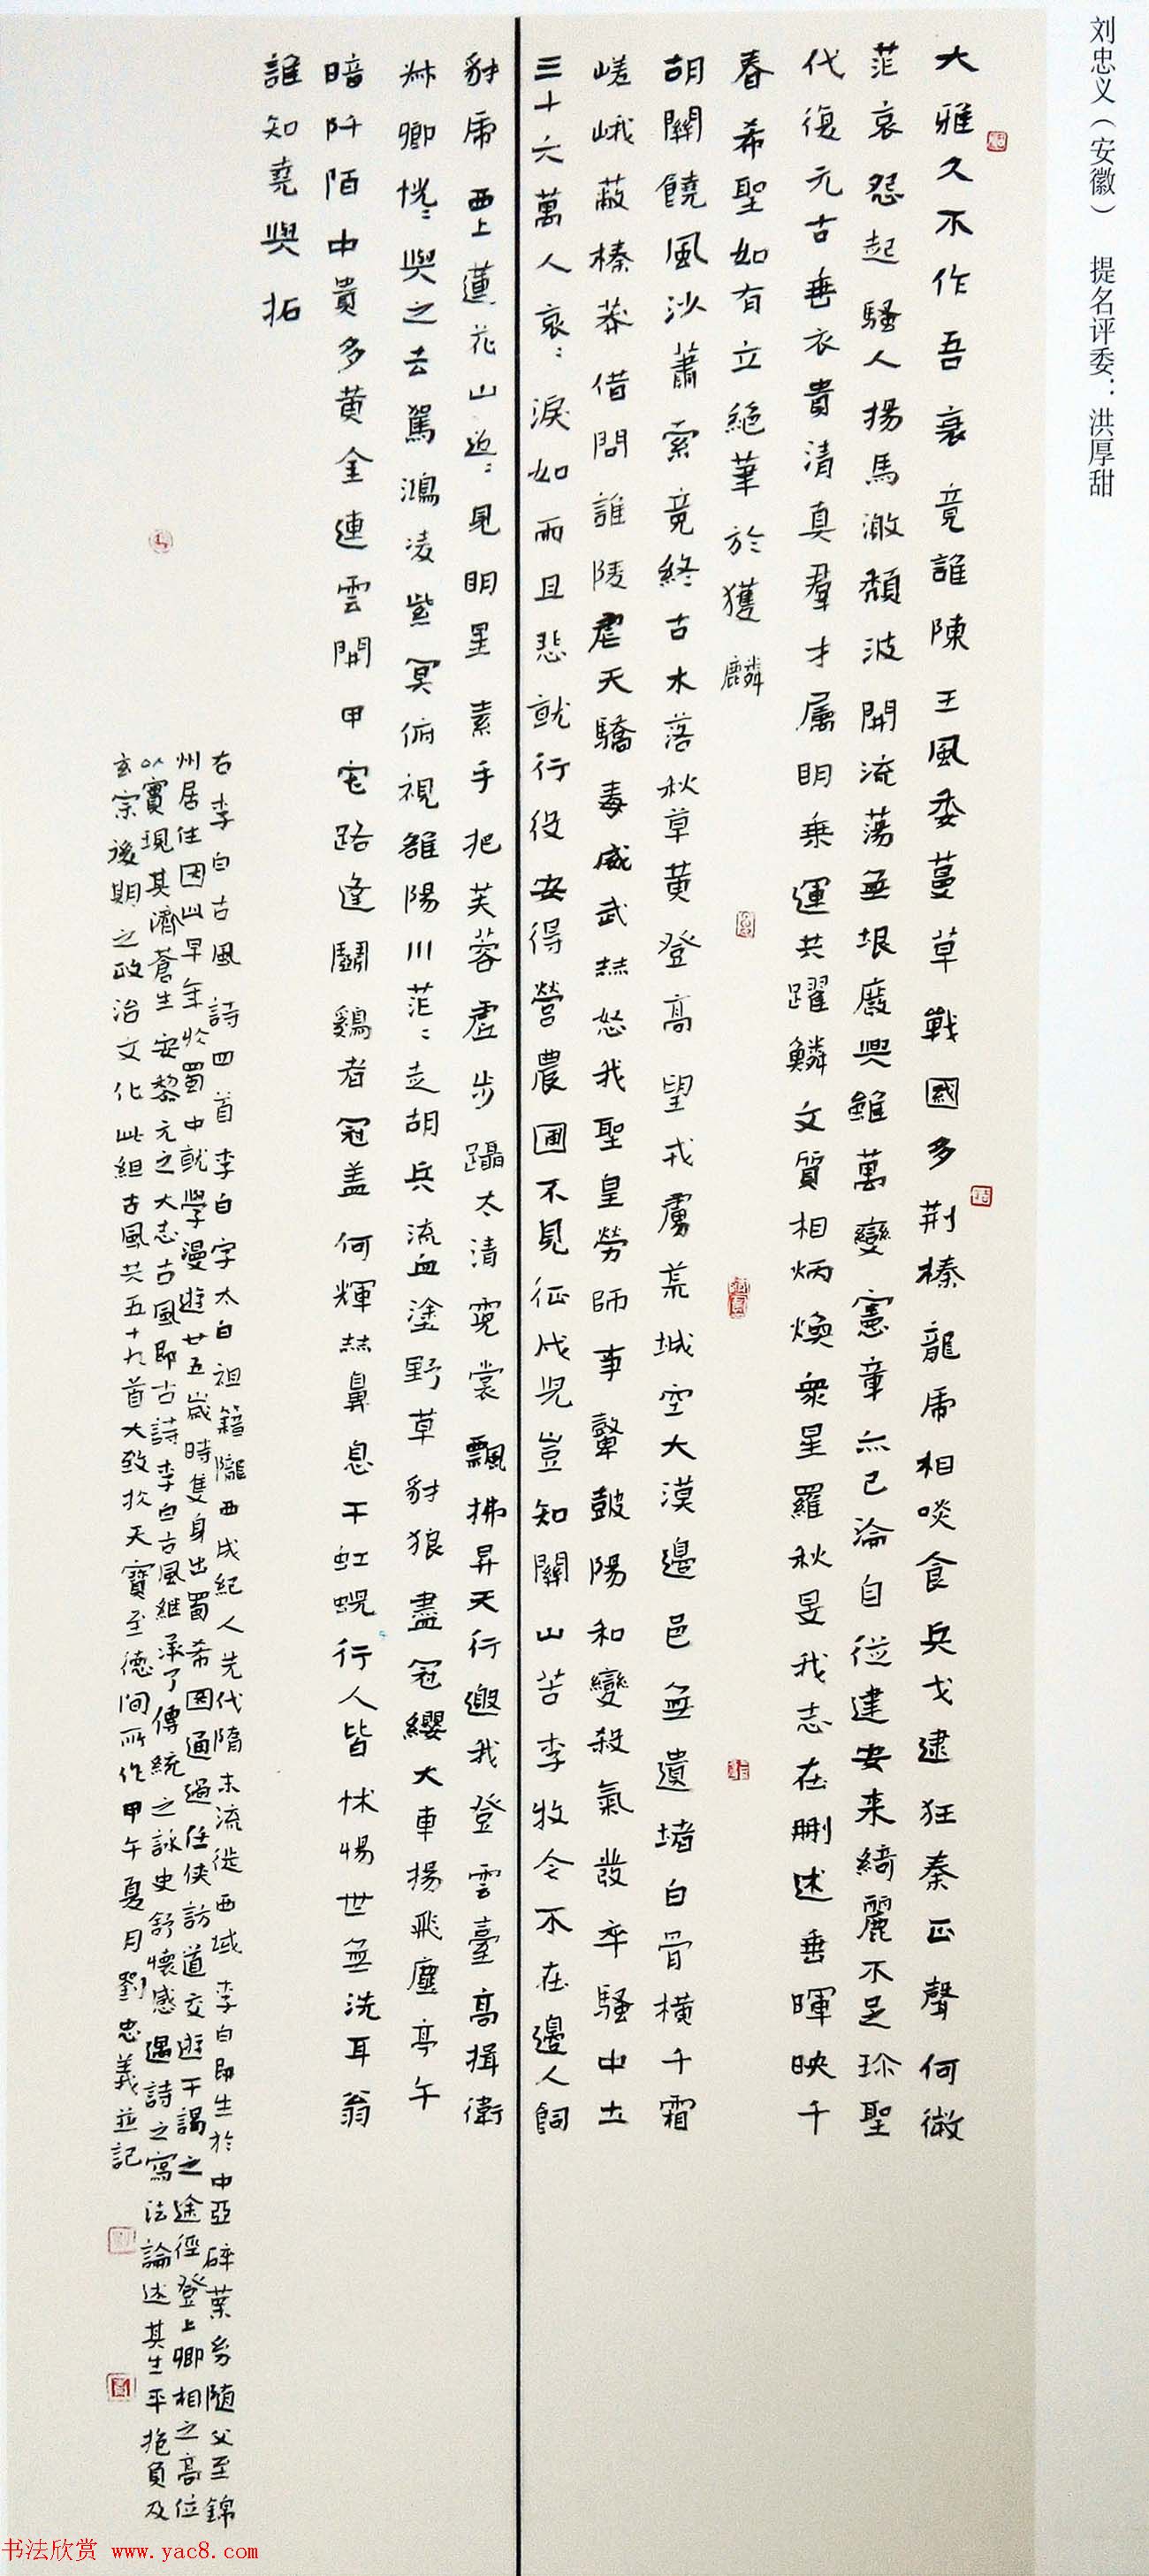 刘忠义（安徽）　提名评委：洪厚甜
大雅久不作吾衰竟誰陳王風委蔓草戰國多荆榛龍虎相啖食兵戈逮狂秦正聲何微
茫哀怨起騷人揚馬激頹波開流蕩無垠廢興雖萬變憲章亦已淪自從建安来綺麗不足珎聖
代復元古垂衣貴清真羣才属明乗運共躍鱗文質相炳煥衆星羅秋旻我志在刪述垂暉映千
春希聖如有立絕筆於獲麟
胡關饒風沙蕭索竟終古水落秋草黄登高望戎虜荒城空大漠邊邑無遺堵白骨橫千霜
嵯峨蔽榛莽借問誰陵虐天驕毒威武赫怒我聖皇勞師事鼙鼓陽和變殺氣發卒騷中土
三十六萬人哀〻淚如雨且悲就行役安得營農圃不見征戍児豈知關山苦李牧今不在邊人飼
豺虎
西上蓮花山迢〻見明星素手把芙蓉虚步躡太清霓裳飄拂昇天行邀我登雲臺高揖衛
叔卿恍〻與之去駕鴻凌紫冥俯視雒陽川茫〻走胡兵流血塗野草豺狼盡冠纓大車揚飛塵亭午
暗阡陌中貴多黄金連雲開甲宅路逢鬭鷄者冠盖何輝赫鼻息干虹蜺行人皆怵惕世無洗耳翁
誰知堯與拓
右李白古風詩四首李白字太白祖籍隴西成紀人先代隋末流徙西域李白即生於中亞碎葉㓜随父至錦
州居住因此早年於蜀中就學漫遊廿五歲時隻身出蜀希図通過任侠訪道交遊干謁之途徑登上卿相之高位
以實現其濟蒼生安黎元之大志古風即古詩李白古風継承了傳統之詠史舒懷感遇詩之寫法論述其生平抱負及
玄宗後期之政治文化此組古風共五十九首大致於天寶至德间所作甲午夏月劉忠義並記
书法欣赏 www.yac8.com